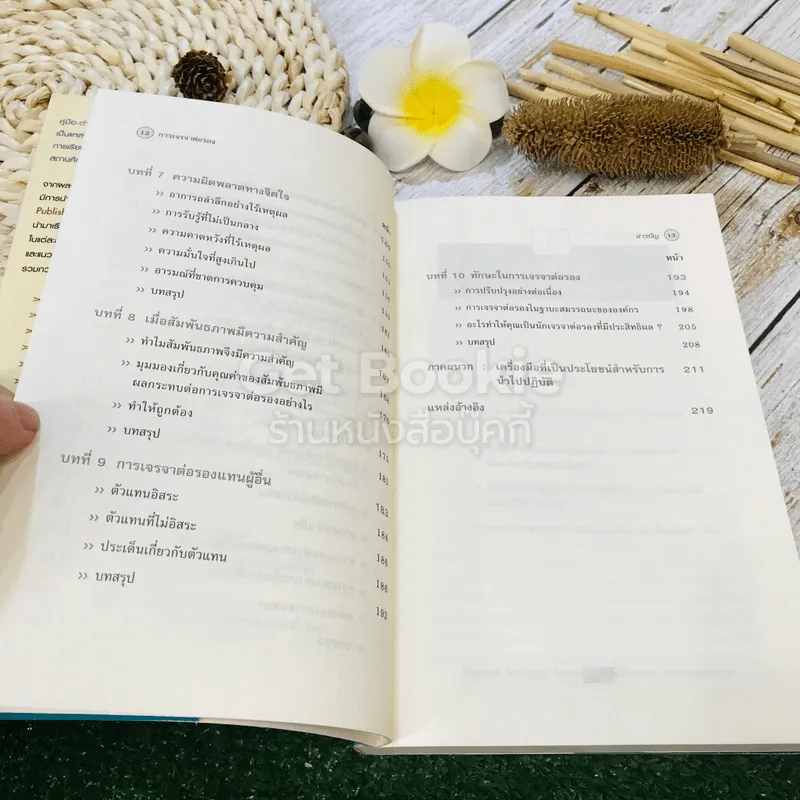 คู่มือ-
เป็นแหล่
การเรีย
สถานศึก
จากผลง
มีการนำ
Publish
นำมาเรี
ในแต่ละ
และแนว
รวบกว
12 การเจรจาต่อรอง
หน้า
บทที่ 7 ความผิดพลาดทางจิตใจ
>> อาการถลำลึกอย่างไร้เหตุผล
>> การรับรู้ที่ไม่เป็นกลาง
>> ความคาดหวังที่ไร้เหตุผล
>> ความมั่นใจที่สูงเกินไป
>> อารมณ์ที่ขาดการควบคุม
>> บทสรุป
บทที่ 8 เมื่อสัมพันธภาพมีความสำคัญ
>> ทำไมสัมพันธภาพจึงมีความสำคัญ
>> มุมมองเกี่ยวกับคุณค่าของสัมพันธภาพมี
ผลกระทบต่อการเจรจาต่อรองอย่างไร
>> ทำให้ถูกต้อง
>> บทสรุป 175
บทที่ 9 การเจรจาต่อรองแทนผู้อื่น 181
>> ตัวแทนอิสระ 183
>> ตัวแทนที่ไม่อิสระ 184
>> ประเด็นเกี่ยวกับตัวแทน 186
>> บทสรุป 192
สารบัญ 13
หน้า
บทที่ 10 ทักษะในการเจรจาต่อรอง 193
>> การปรับปรุงอย่างต่อเนื่อง 194
>> การเจรจาต่อรองในฐานะสมรรถนะขององค์กร 198
>> อะไรทำให้คุณเป็นนักเจรจาต่อรองที่มีประสิทธิผล ? 205
>> บทสรุป 208
ภาคผนวก : เครื่องมือที่เป็นประโยชน์สำหรับการ 211
นำไปปฏิบัติ
แหล่งอ้างอิง 219
Get Bookie
ร้านหนังสือบุ๊คกี้